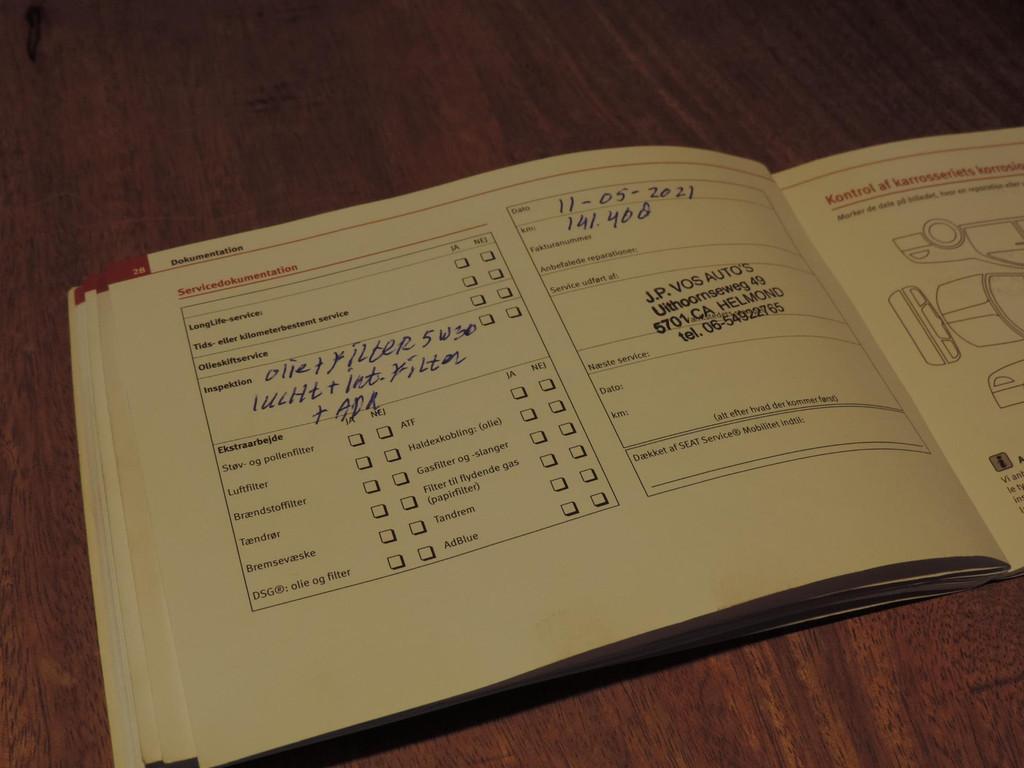 28
Dokumentation
Servicedokumentation
JA NEJ
LongLife-service:
Tids- eller kilometerbestemt service
Olieskiftservice
Inspektion
olie + Filter 5W30
lucht + int. Filter
+ APK
Ekstraarbejde
JA NEJ
JA NEJ
Støv- og pollenfilter
Luftfilter
Brændstoffilter
Tændrør
Bremsevæske
DSG®: olie og filter
ATF
Haldexkobling: (olie)
Gasfilter og -slanger
Filter til flydende gas
(papirfilter)
Tandrem
AdBlue
Dato 11-05-2021
km: 141.408
Fakturanummer
Anbefalede reparationer:
Service udført af:
J.P. VOS AUTO'S
Uithoornseweg 49
5701 CA HELMOND
tel. 06-54922765
Næste service:
Dato:
km:
(alt efter hvad der kommer først)
Dækket af SEAT Service® Mobilitet indtil:
Kontrol af karrosseriets korrosio
Marker de dele på billedet, hvor en reparation eller
i A
Vi anb